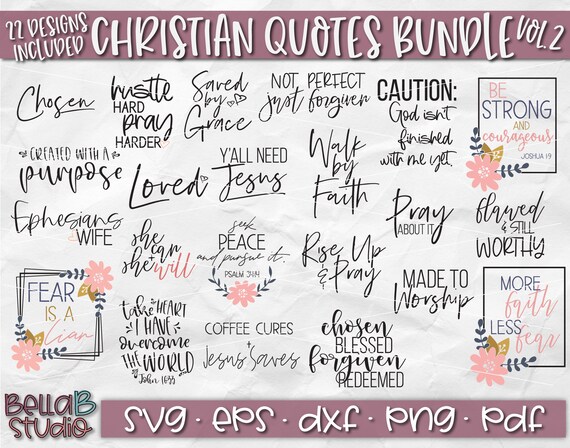 22 DESIGNS
INCLUDED
CHRISTIAN QUOTES BUNDLE VOL.2
Chosen
hustle
HARD
pray
HARDER
Saved
by
Grace
NOT PERFECT
just forgiven
CAUTION:
God isn't
finished
with me yet
BE
STRONG
AND
courageous
JOSHUA 1:9
CREATED WITH A
purpose
Loved
Y'ALL NEED
Jesus
Walk
by
Faith
Pray
ABOUT IT
flawed
& STILL
WORTHY
Ephesians
31
WIFE
she
can
she
will
seek
PEACE
and pursue it.
PSALM 34:14
Rise Up
& Pray
MADE TO
Worship
FEAR
IS A
Liar
take HEART
I HAVE
overcome
THE WORLD
John 16:33
COFFEE CURES
Jesus Saves
chosen
BLESSED
forgiven
REDEEMED
MORE
faith
LESS
fear
BELLA B
STUDIO
SVG · EPS · DXF · PNG · PDF